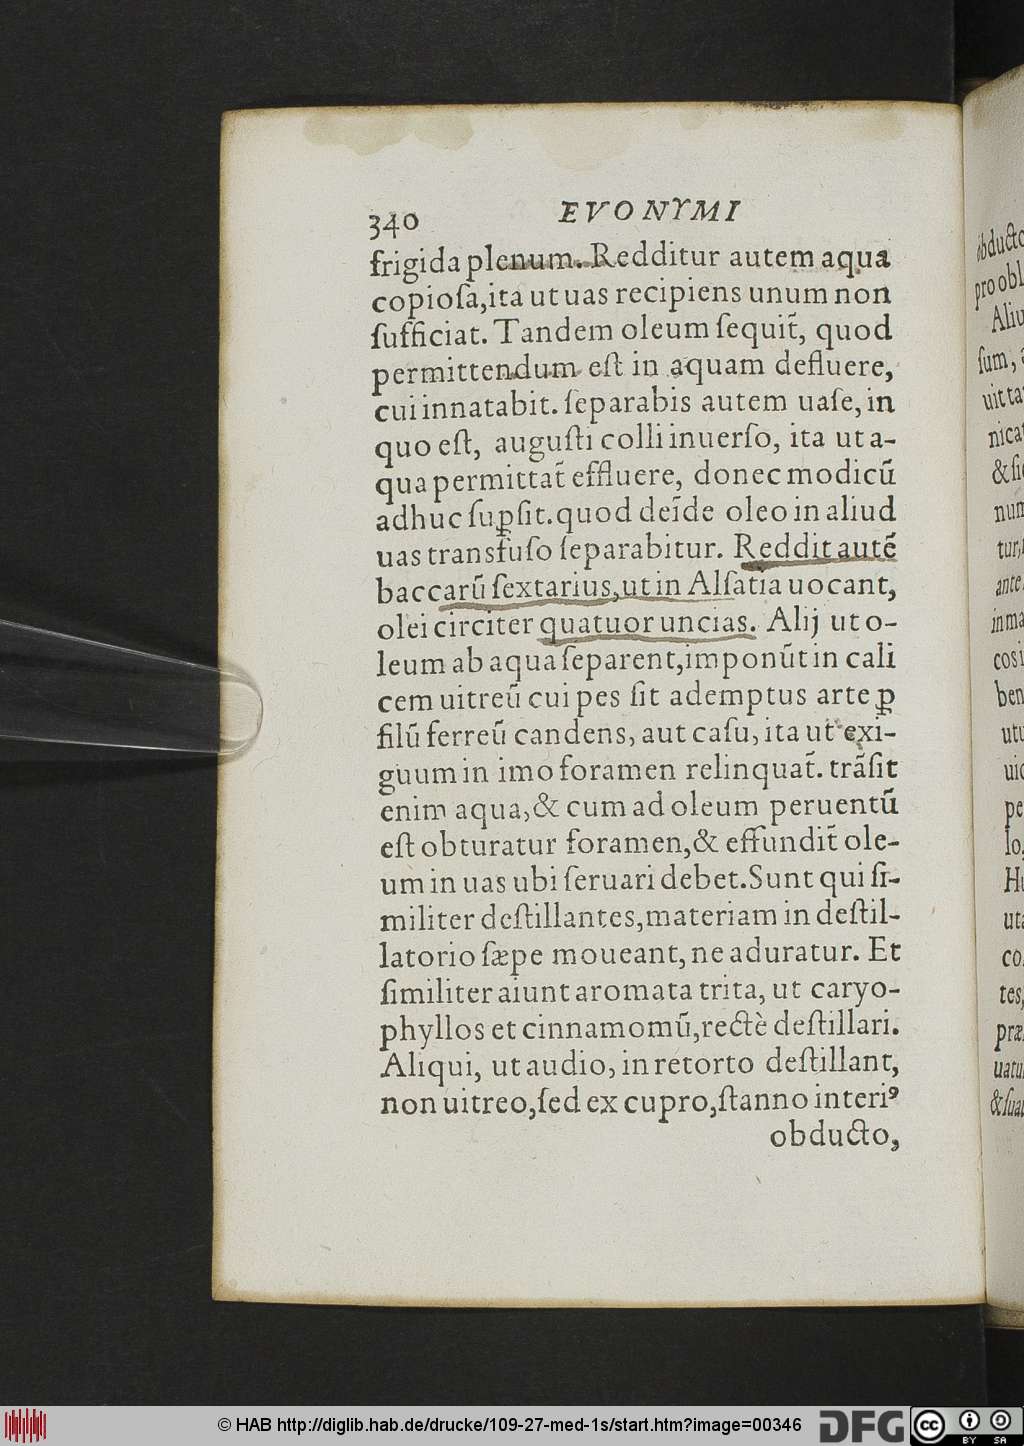 340 EVONYMI
frigida plenum. Redditur autem aqua
copioſa, ita ut uas recipiens unum non
ſufficiat. Tandem oleum ſequit̃, quod
permittendum eſt in aquam defluere,
cui innatabit. ſeparabis autem uaſe, in
quo eſt, auguſti colli inuerſo, ita ut a-
qua permittat̃ effluere, donec modicũ
adhuc suꝑſit. quod deĩde oleo in aliud
uas transfuſo ſeparabitur. Reddit autẽ
baccarũ ſextarius, ut in Alſatia uocant,
olei circiter quatuor uncias. Alij ut o-
leum ab aqua ſeparent, imponũt in cali
cem uitreũ cui pes ſit ademptus arte ꝑ
filũ ferreũ candens, aut caſu, ita ut exi-
guum in imo foramen relinquat̃. trãſit
enim aqua, & cum ad oleum peruentũ
eſt obturatur foramen, & effundit̃ ole-
um in uas ubi ſeruari debet. Sunt qui ſi-
militer deſtillantes, materiam in deſtil-
latorio ſæpe moueant, ne aduratur. Et
ſimiliter aiunt aromata trita, ut caryo-
phyllos et cinnamomũ, rectè deſtillari.
Aliqui, ut audio, in retorto deſtillant,
non uitreo, ſed ex cupro, ſtanno interiꝰ
obducto,
obducto
pro obl
Aliu
ſum,
uit ta
nica
& ſi
num
tur,
ante
in ma
cos i
ben
utu
uic
pe
lo
Hu
uta
co
tes,
præ
uatu
& ſua
© HAB http://diglib.hab.de/drucke/109-27-med-1s/start.htm?image=00346 DFG cc BY SA